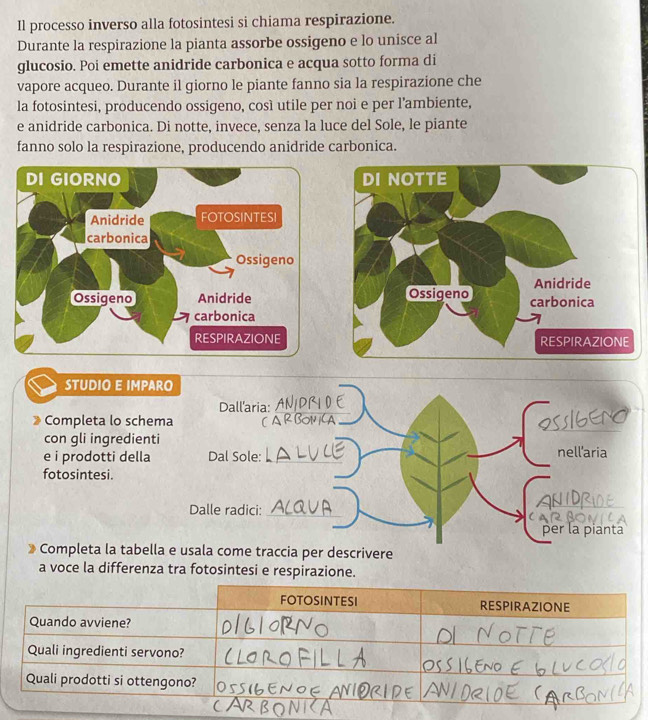 Il processo inverso alla fotosintesi si chiama respirazione.
Durante la respirazione la pianta assorbe ossigeno e lo unisce al
glucosio. Poi emette anidride carbonica e acqua sotto forma di
vapore acqueo. Durante il giorno le piante fanno sia la respirazione che
la fotosintesi, producendo ossigeno, così utile per noi e per l'ambiente,
e anidride carbonica. Di notte, invece, senza la luce del Sole, le piante
fanno solo la respirazione, producendo anidride carbonica.
DI GIORNO
Anidride
carbonica
FOTOSINTESI
Ossigeno
Ossigeno
Anidride
carbonica
RESPIRAZIONE
DI NOTTE
Ossigeno
Anidride
carbonica
RESPIRAZIONE
STUDIO E IMPARO
Completa lo schema
con gli ingredienti
e i prodotti della
fotosintesi.
Dall'aria: ANIDRIDE
CARBONICA
Dal Sole: LA LUCE
Dalle radici: ACQUA
OSSIGENO
nell'aria
ANIDRIDE
CARBONICA
per la pianta
Completa la tabella e usala come traccia per descrivere
a voce la differenza tra fotosintesi e respirazione.
FOTOSINTESI RESPIRAZIONE
Quando avviene? DI GIORNO DI NOTTE
Quali ingredienti servono? CLOROFILLA OSSIGENO E GLUCOSIO
Quali prodotti si ottengono? OSSIGENO E ANIDRIDE ANIDRIDE CARBONICA
CARBONICA